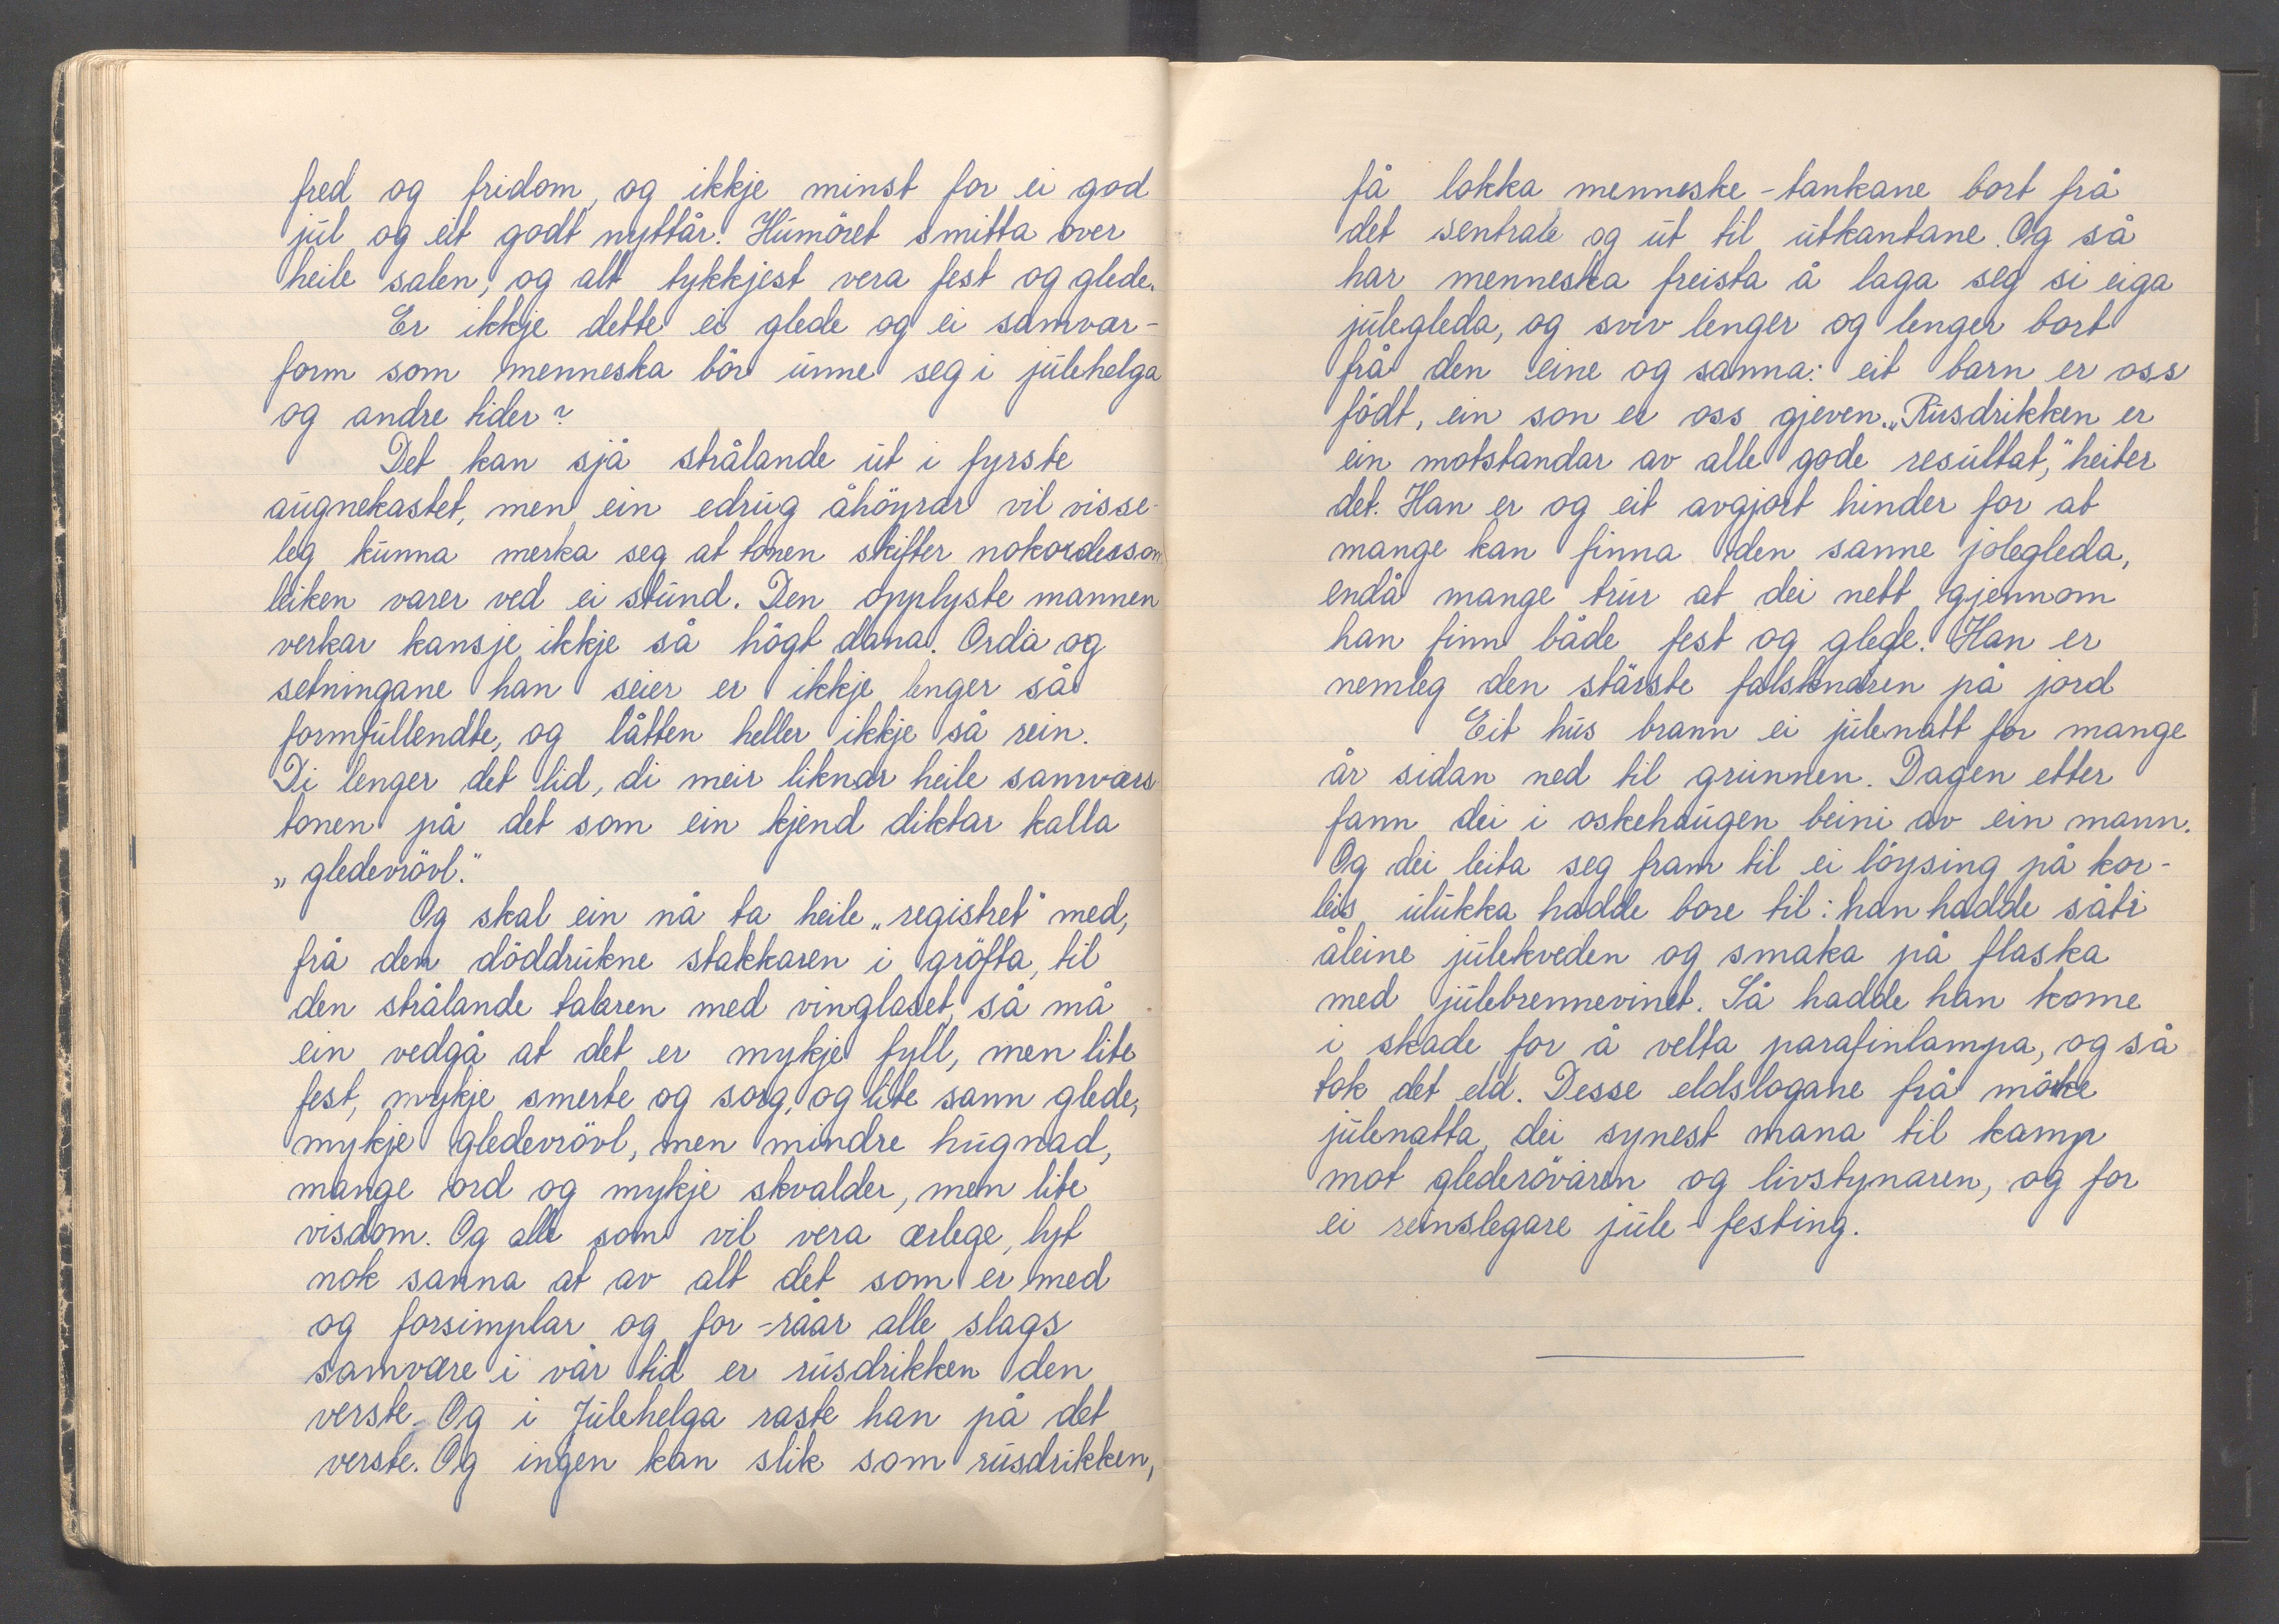 fred og fridom, og ikkje minst for ei god
jul og eit godt nyttår. Humöret smitta over
heile salen, og alt tykkjest vera fest og glede.
Er ikkje dette ei glede og ei samvær-
form som menneska bör unne seg i julehelga
og andre tider?
Det kan sjå strålande ut i fyrste
augnekastet, men ein edrug åhöyrar vil visse-
leg kunna merka seg at tonen skifter nokordes som
leiken varer ved ei stund. Den opplyste mannen
verkar kansje ikkje så högt dana. Orda og
setningane han seier er ikkje lenger så
formfullendte, og låtten heller ikkje så rein.
Di lenger det lid, di meir liknar heile samværs
tonen på det som ein kjend diktar kalla
„gledevrövl."
Og skal ein nå ta heile „registret" med,
frå den döddrukne stakkaren i gröfta, til
den strålande talaren med vinglaset, så må
ein vedgå at det er mykje fyll, men lite
fest, mykje smerte og sorg, og lite sann glede,
mykje gledevrövl, men mindre hugnad,
mange ord og mykje skvalder, men lite
visdom. Og alle som vil vera ærlege, lyt
nok sanna at av alt det som er med
og forsimplar og for-råar alle slags
samvære i vår tid er rusdrikken den
verste. Og i Julehelga raste han på det
verste. Og ingen kan slik som rusdrikken,
få lokka menneske-tankane bort frå
det sentrale og ut til utkantane. Og så
har menneska freista å laga seg si eiga
julegleda, og sviv lenger og lenger bort
frå den eine og sanna: eit barn er oss
födt, ein son er oss gjeven. „Rusdrikken er
ein motstandar av alle gode resultat," heiter
det. Han er og eit avgjort hinder for at
mange kan finna den sanne jolegleda,
endå mange trur at dei nett gjennom
han finn både fest og glede. Han er
nemleg den störste falsknaren på jord
Eit hus brann ei julenatt for mange
år sidan ned til grunnen. Dagen etter
fann dei i oskehaugen beini av ein mann.
Og dei leita seg fram til ei löysing på kor-
leis ulukka hadde bore til: han hadde såti
åleine julekveden og smaka på flaska
med julebrennevinet. Så hadde han kome
i skade for å velta parafinlampa, og så
tok det eld. Desse eldslogane frå mörke
julenatta, dei synest mana til kamp
mot glederövaren og livstynaren, og for
ei reinslegare jule-festing.